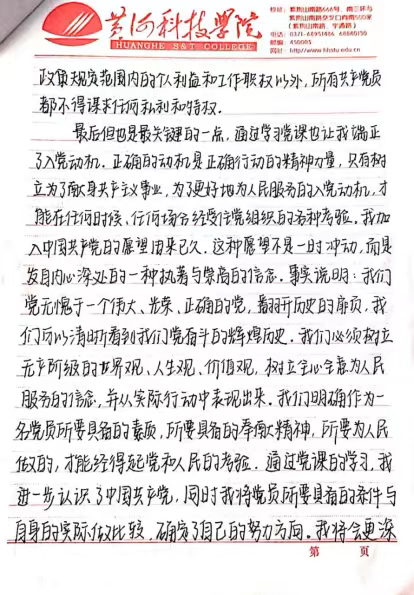 黄河科技学院
HUANGHE S&T COLLEGE
政策规定范围内的个人利益和工作职权以外，所有共产党员
都不得谋求任何私利和特权.
最后但也是最关键的一点，通过学习党课也让我端正
了入党动机. 正确的动机是正确行动的精神力量，只有树
立为了献身共产主义事业，为了更好地为人民服务的入党动机，才
能在任何时候、任何场合经受住党组织的各种考验. 我加
入中国共产党的愿望由来已久. 这种愿望不是一时冲动，而是
发自内心深处的一种执著与崇高的信念. 事实说明：我们
党无愧于一个伟大、光荣、正确的党，翻开历史的扉页，我
们可以清晰看到我们党奋斗的辉煌历史. 我们必须树立
无产阶级的世界观、人生观、价值观，树立全心全意为人民
服务的信念，并从实际行动中表现出来. 我们明确作为一
名党员所要具备的素质，所要具备的奉献精神，所要为人民
做的，才能经得起党和人民的考验. 通过党课的学习，我
进一步认识了中国共产党，同时我将党员所要具备的条件与
自身的实际做比较，确定了自己的努力方向. 我将会更深
第 页